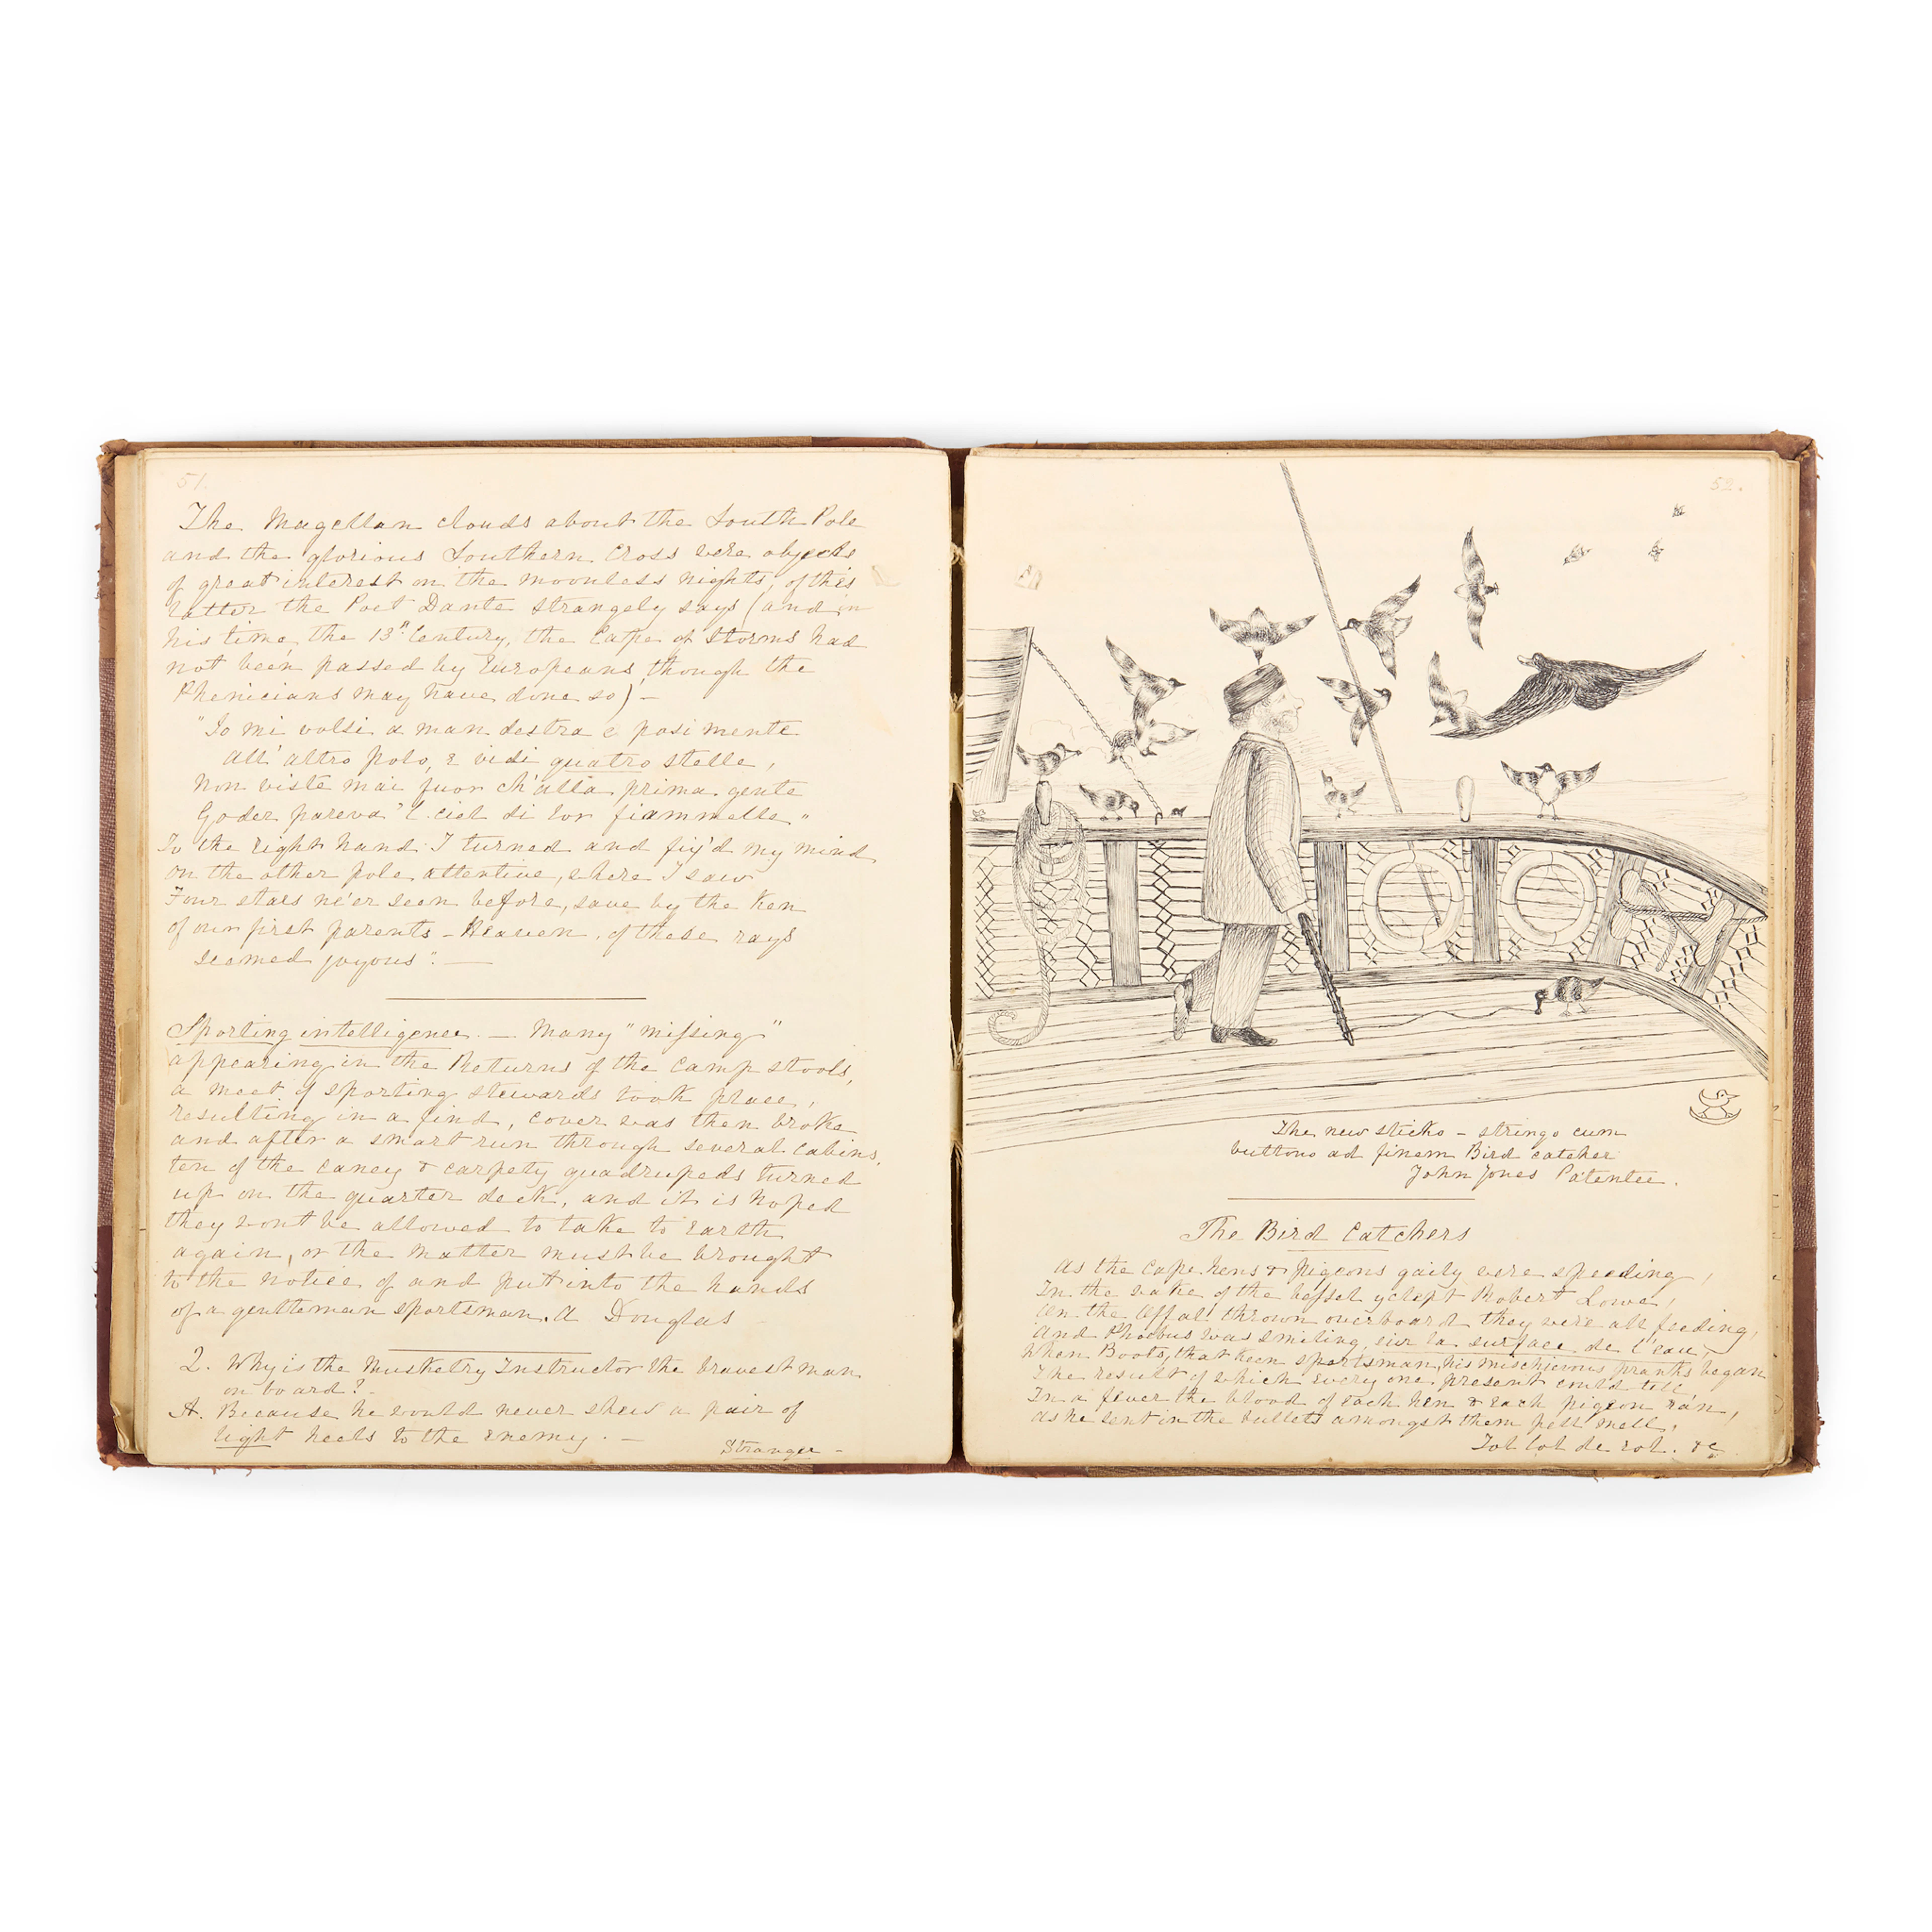 51.
The Magellan clouds about the South Pole
and the glorious Southern Cross were objects
of great interest on the moonless nights, of this
latter the Poet Dante strangely says (and in
his time, the 13th Century, the Cape of Storms had
not been passed by Europeans, though the
Phenicians may have done so) -
"Io mi volsi a man destra e posi mente
all' altro polo, e vidi quatro stelle,
Non viste mai fuor ch' alla prima gente
Goder pareva 'l ciel di lor fiammelle"
To the right hand I turned and fix'd my mind
on the other pole attentive, where I saw
Four stars ne'er seen before, save by the ken
of our first parents - Heaven of these rays
seemed joyous". —
Sporting intelligence. — Many "missing"
appearing in the Returns of the camp stools,
a meet of sporting stewards took place,
resulting in a find, cover was then broke
and after a smart run through several cabins,
ten of the caney & carpety quadrupeds turned
up on the quarter deck, and it is hoped
they wont be allowed to take to earth
again, or the matter must be brought
to the notice of and put into the hands
of a gentleman sportsman. A Douglas
Q. Why is the Musketry Instructor the bravest man
on board? -
A. Because he would never shew a pair of
light heels to the enemy. —
Stranger -
52.
The new sticko - stringo cum
buttono ad finem Bird catcher
John Jones Patentee.
The Bird Catchers
As the Cape hens & pigeons gaily were speeding,
In the wake of the vessel yclept Robert Lowe,
On the Offal thrown overboard they were all feeding,
And Phoebus was smiling, sur la surface de l'eau,
When Boots, that keen sportsman, his mischievous pranks began
The result of which every one present could tell,
In a fever the blood of each hen & each pigeon ran,
as he sent in the bullets amongst them pell mell.
Tol lol de rol. &c